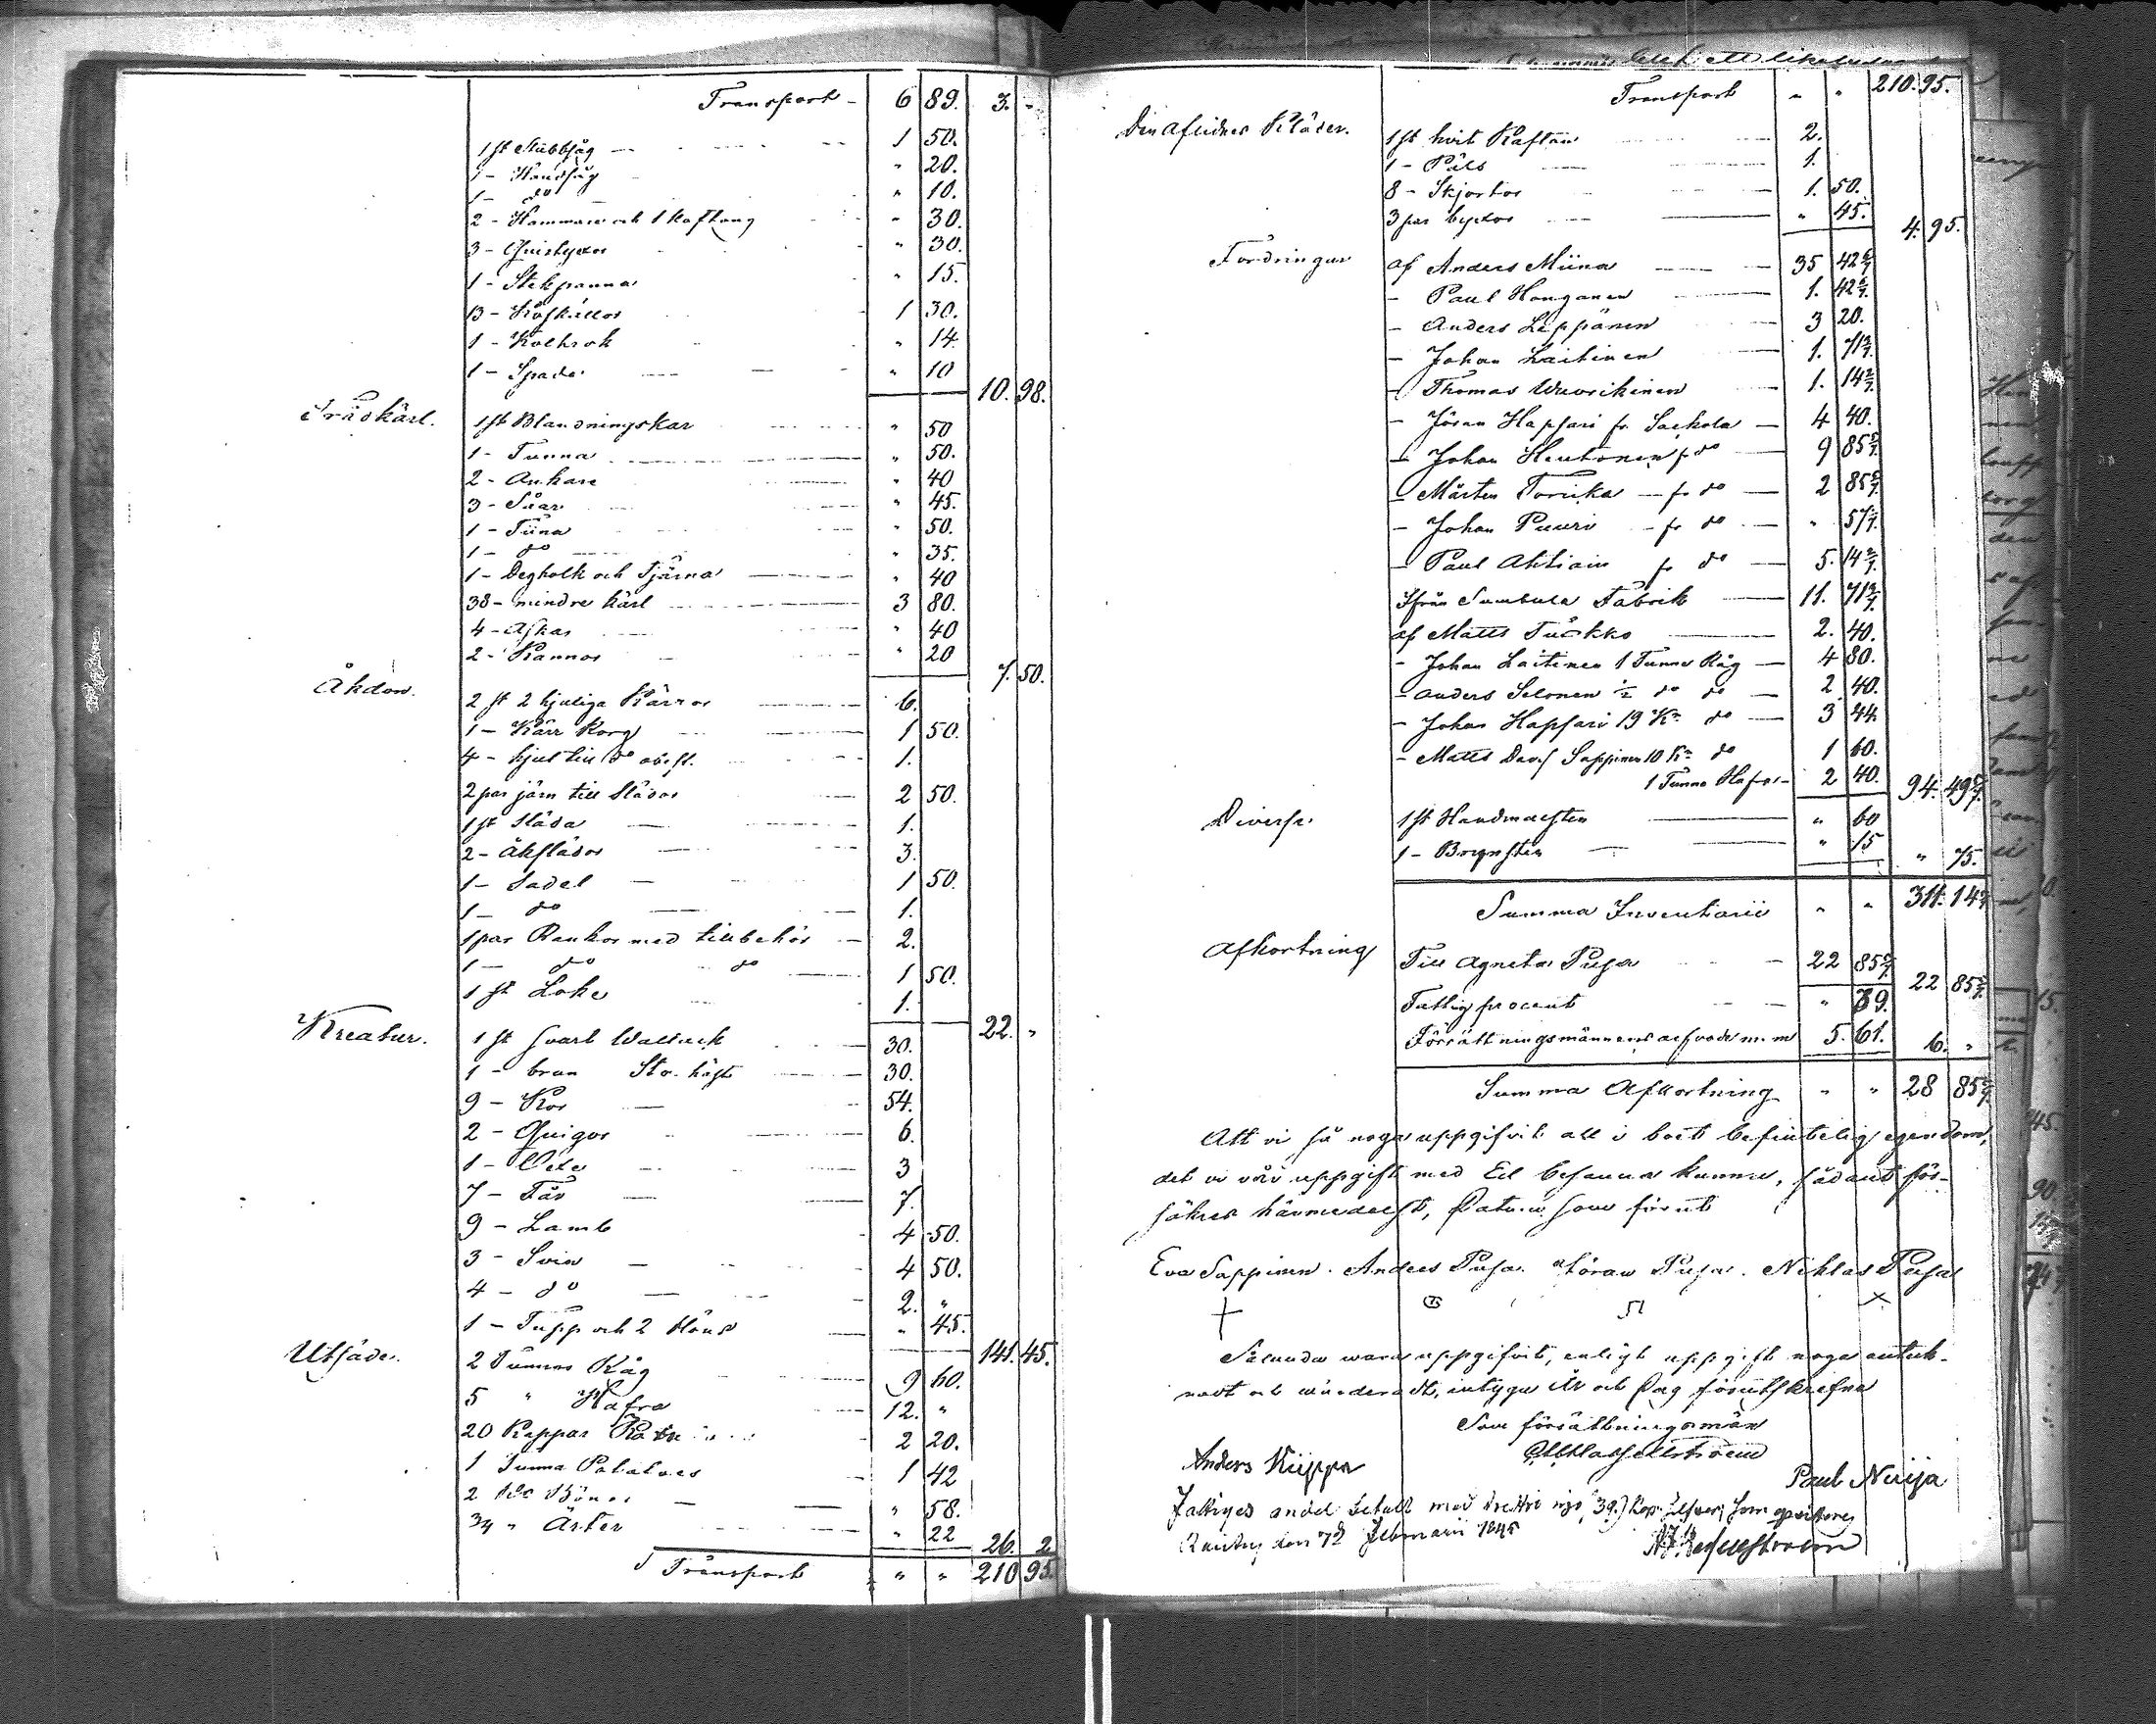 Transport - 6 89. 3. -
1 st Stubbsåg 1 50.
1 - Handsåg " 20.
1 - do " 10.
2 - Hammare och 1 Koftång " 30.
3 - Qvistyxor " 30.
1 - Stekpanna " 15.
13 - 1 30.
1 - " 14.
1 - Spade " 10 10. 98.
Trädkärl. 1 st Blandningskar " 50
1 - Tunna " 50.
2 - Ankare " 40
3 - Såar " 45.
1 - Tiina " 50.
1 - do " 35.
1 - Degholk och Tjärna " 40
38 - mindre kärl 3 80.
4 - Askar " 40
2 - Kannor " 20 7. 50.
Åkdon. 2 st 2 hjuliga Kärror 6.
1 - Kärr Korg 1 50.
4 - hjul till do 1.
2 par järn till Slädor 2 50.
1 st Släda 1.
2 - Åkslädor 3.
1 - Sadel 1 50.
1 - do 1.
1 par Rankor med tillbehör 2.
1 - do do 1 50.
1 st Loke 1. 22. "
Kreatur. 1 st svart Wallack 30.
1 - brun Sto häst 30.
9 - Kor 54.
2 - Qvigor 6.
1 - 3
7 - Får 7.
9 - Lamb 4 50.
3 - Svin 4 50.
4 - do 2. "
1 - Tupp och 2 Höns " 45. 141. 45.
Utsäde. 2 Tunnor Råg 9 60.
5 " Hafra 12. "
20 Kappar 2 20.
1 Tunna Potatoes 1 42
2 Bönor " 58.
3/4 " Ärter " 22 26. 2
Transport " " 210 95.
Transport " " 210. 95.
Den Aflidnes Kläder. 1 st hvit Kaftan 2.
1 - Päls 1.
8 - Skjortor 1. 50.
3 par byxor " 45. 4. 95.
Fordringar af Anders Miina 35 42 6/7
- Paul Honganen 1. 42 6/7.
- Anders Leppänen 3 20.
- Johan Laitinen 1. 71 3/7.
- Thomas Wavrikainen 1. 14 2/7.
- Jöran Hapsari fr Sackola 4 40.
- Johan Heutonen fr do 9 85 5/7.
- Mårten Torikka fr do 2 85 5/7.
- Johan Puuri fr do " 57 1/7.
- Paul Ahtiain fr do 5. 14 2/7.
Ifrån Sumbula Fabrik 11. 71 3/7.
af Matts Tuokko 2. 40.
- Johan Laitinen 1 Tunna Råg 4 80.
- Anders Selonen 1/2 do do 2 40.
- Johan Hapsari 19 Kr do 3 44
- Matts Davs Sappinen 10 Kr do 1 60.
1 Tunna Hafre 2 40. 94. 49 5/7.
Diverse. 1 st Handqvarsten " 60
1 - Brynsten " 15 " 75.
Summa Inventarii " " 311. 14 5/7
Afkortning Till Agneta Pusa 22 85 5/7. 22 85 5/7.
Fattig procent " 39.
Förrättningsmännens arfvode m. m 5. 61. 6. "
Summa Afkortning " " 28 85 5/7.
Att vi så noga uppgifvit all i boet befintelig egendom,
det vi vår uppgift med Ed besanna kunna, sådant för-
säkras härmedelst, Datum som förut
Eva Sappinen. Anders Pusa. Jöran Pusa. Niklas Pusa
Sålunda wara uppgifvit, enligt uppgift noga anteck-
nadt och wärderadt, intyga År och Dag förutskrefne
Som förrättningsmän
Anders Kiippa
Paul Nuija
Fattiges andel betalt med trettio nijo (39) kop: Silfver, som qvitteras
Rautus den 7de Februarii 1845